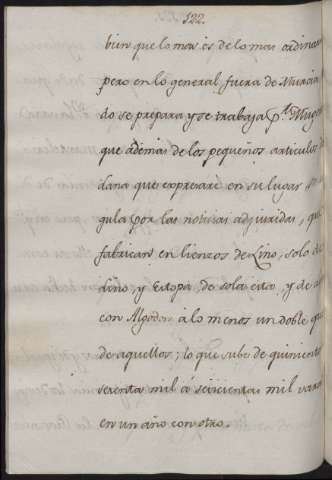 122.
bien que lo mas es de lo mas ordina
pero en lo general fuera de Murcia
do se prepara y se trabaja p.r Muge
que ademas de los pequeños articulos de
dana que expresaré en su lugar se
gula por las noticias adquiridas, que
fabrican en lienzos de Lino, solo de
Lino, y Estopa, de sola esta, y de
con Algodon a lo menos un doble que
de aquellos; lo que sube de quinient
sesenta mil a seiscientas mil varas
en un año con otro.